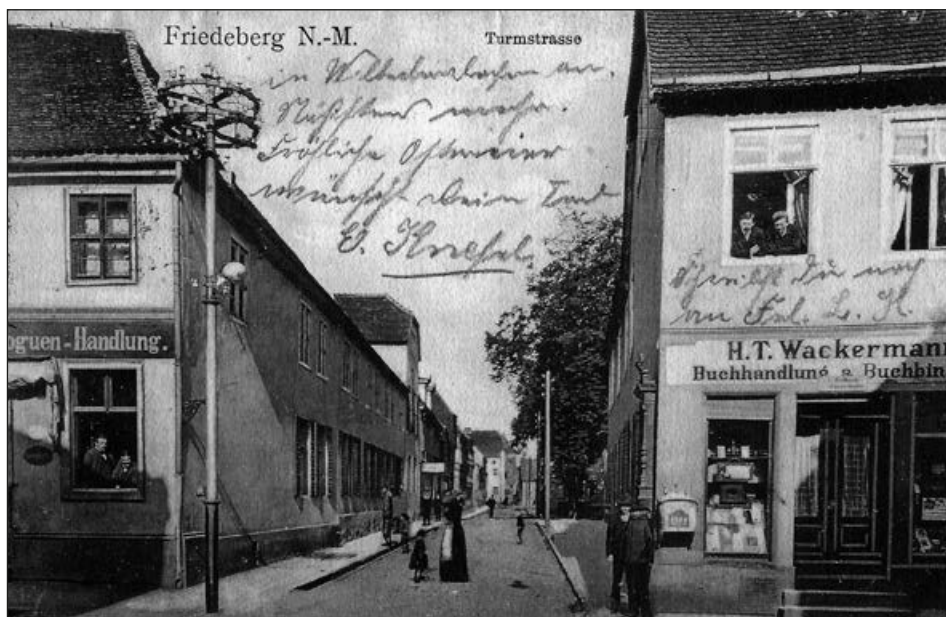 Friedeberg N.-M.
Turmstrasse
in Wilhelmshafen an.
Nächstens mehr.
Fröhliche Ostereier
wünscht Dein
E.
Schreibst Du noch
an Frl. L. K.
oguen-Handlung.
H.T. Wackermann
Buchhandlung & Buchbin